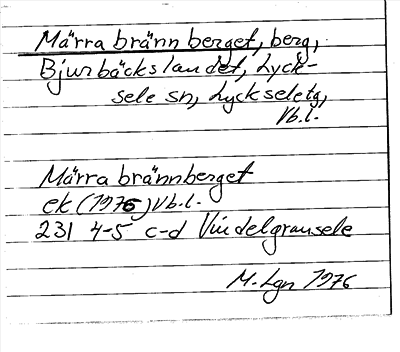 Märrabrännberget, berg,
Bjurbäckslandet, Lyck-
sele sn, Lycksele tg,
Vb.l.
Märrabrännberget
ek (1976) Vb.l.
231 4-5 c-d Vindelgransele
M. Lgn 1976